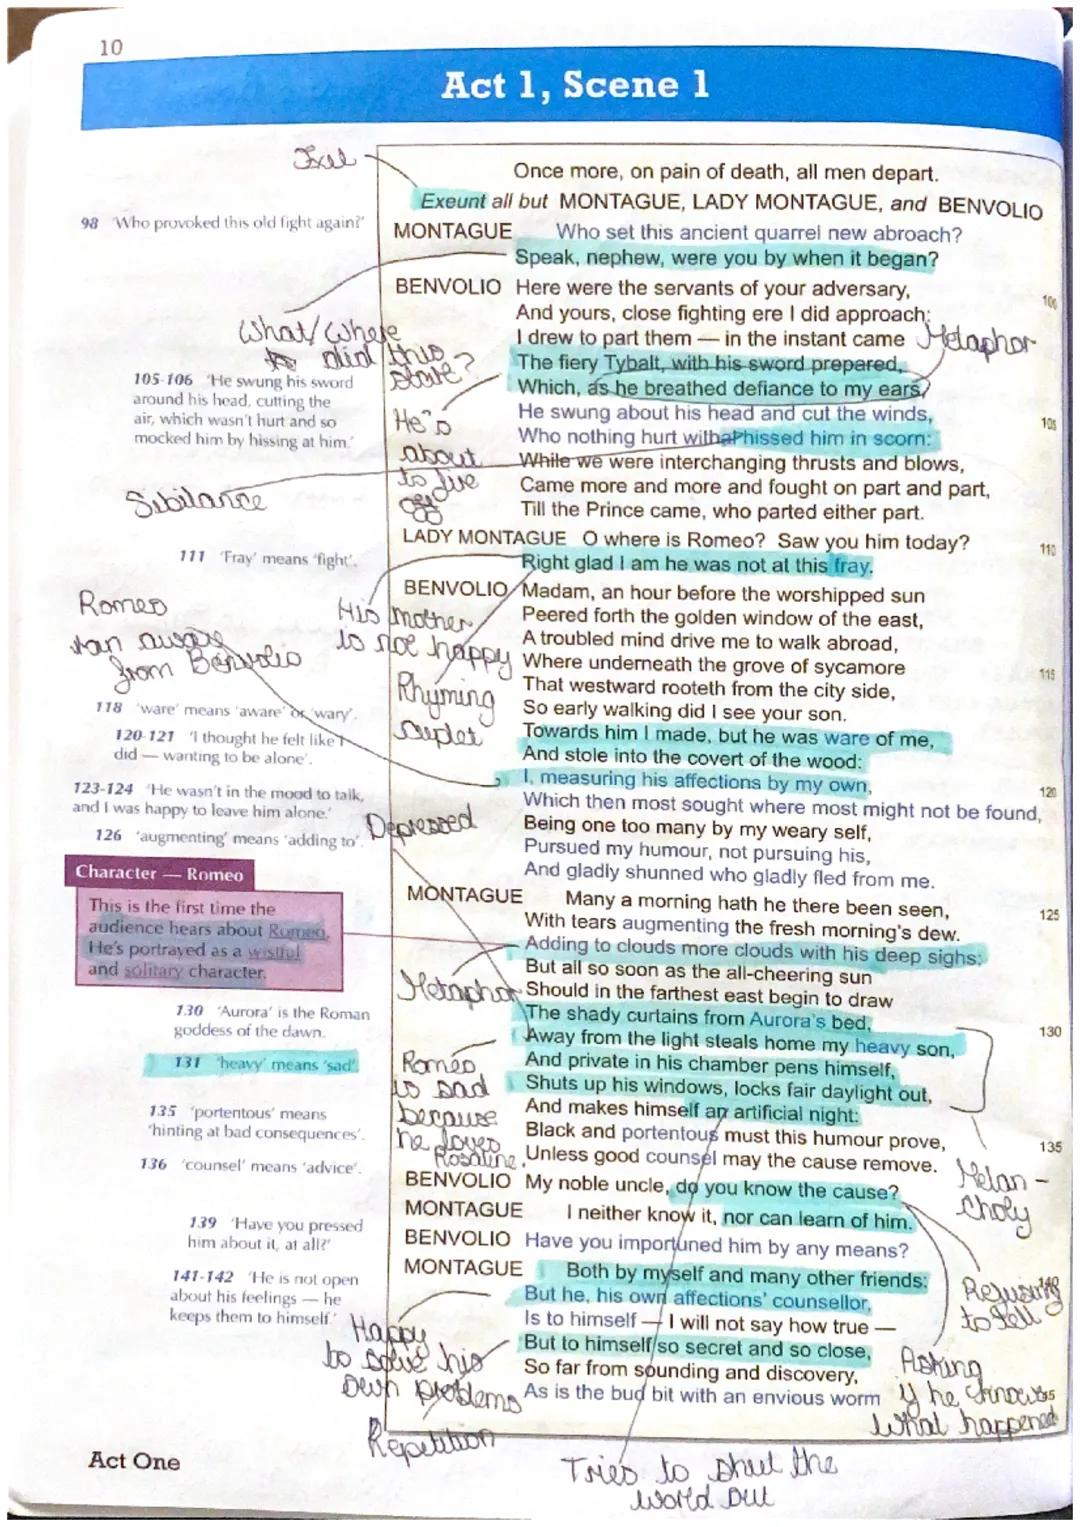 10
Act 1, Scene 1
Exit
Once more, on pain of death, all men depart.
Exeunt all but MONTAGUE, LADY MONTAGUE, and BENVOLIO
98 'Who provoked this old fight again?'
MONTAGUE Who set this ancient quarrel new abroach?
Speak, nephew, were you by when it began?
BENVOLIO Here were the servants of your adversary,
100
And yours, close fighting ere I did approach:
I drew to part them — in the instant came
Metaphor
The fiery Tybalt, with his sword prepared,
Which, as he breathed defiance to my ears,
He swung about his head and cut the winds,
105
Who nothing hurt hissed him in scorn:
While we were interchanging thrusts and blows,
Came more and more and fought on part and part,
Till the Prince came, who parted either part.
What/Where
did this
start?
105-106 'He swung his sword
around his head, cutting the
air, which wasn't hurt and so
mocked him by hissing at him.'
He's
about
to
off
Sibilance
LADY MONTAGUE O where is Romeo? Saw you him today?
110
Right glad I am he was not at this fray.
111 'Fray' means 'fight'.
BENVOLIO Madam, an hour before the worshipped sun
Peered forth the golden window of the east,
A troubled mind drive me to walk abroad,
Where underneath the grove of sycamore
115
That westward rooteth from the city side,
So early walking did I see your son.
Towards him I made, but he was ware of me,
And stole into the covert of the wood:
I, measuring his affections by my own,
120
Which then most sought where most might not be found,
Being one too many by my weary self,
Pursued my humour, not pursuing his,
And gladly shunned who gladly fled from me.
Romeo
ran away
from Benvolio
His mother
is not happy
Rhyming
Cuplet
118 'ware' means 'aware' or 'wary'.
120-121 'I thought he felt like I
did — wanting to be alone'.
123-124 'He wasn't in the mood to talk,
and I was happy to leave him alone.'
126 'augmenting' means 'adding to'.
Depressed
MONTAGUE Many a morning hath he there been seen,
125
With tears augmenting the fresh morning's dew.
Adding to clouds more clouds with his deep sighs;
But all so soon as the all-cheering sun
Should in the farthest east begin to draw
The shady curtains from Aurora's bed,
130
Away from the light steals home my heavy son,
And private in his chamber pens himself,
Shuts up his windows, locks fair daylight out,
And makes himself an artificial night:
Black and portentous must this humour prove,
135
Unless good counsel may the cause remove.
Character — Romeo
This is the first time the
audience hears about Romeo.
He's portrayed as a wistful
and solitary character.
Metaphor
130 'Aurora' is the Roman
goddess of the dawn.
131 'heavy' means 'sad'.
Romeo
is sad
because
he loves
Rosaline.
135 'portentous' means
'hinting at bad consequences'.
136 'counsel' means 'advice'.
Melan-
choly
BENVOLIO My noble uncle, do you know the cause?
MONTAGUE I neither know it, nor can learn of him.
BENVOLIO Have you importuned him by any means?
MONTAGUE Both by myself and many other friends:
140
But he, his own affections' counsellor,
Is to himself — I will not say how true —
But to himself so secret and so close,
So far from sounding and discovery,
As is the bud bit with an envious worm
139 'Have you pressed
him about it, at all?'
141-142 'He is not open
about his feelings — he
keeps them to himself.'
Refusing
to tell
Happy
to solve his
own problems
Repetition
Asking
if he knows
what happened
Act One
Tries to shut the
world out